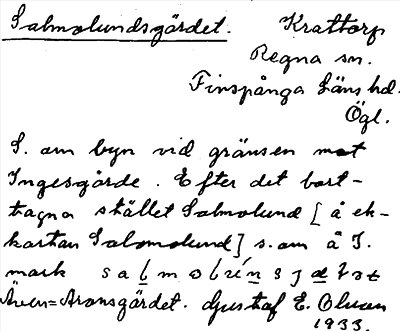 Salmolundsgärdet. Krattorp
Regna sn.
Finspånga Läns hd.
Ögl.
S. om byn vid gränsen mot
Ingesgärde. Efter det bort-
tagna stället Salmolund [å ek-
kartan Salomolund] s. om å I.
mark
Även = Aronsgärdet. Gustaf E. Olsson
1933.